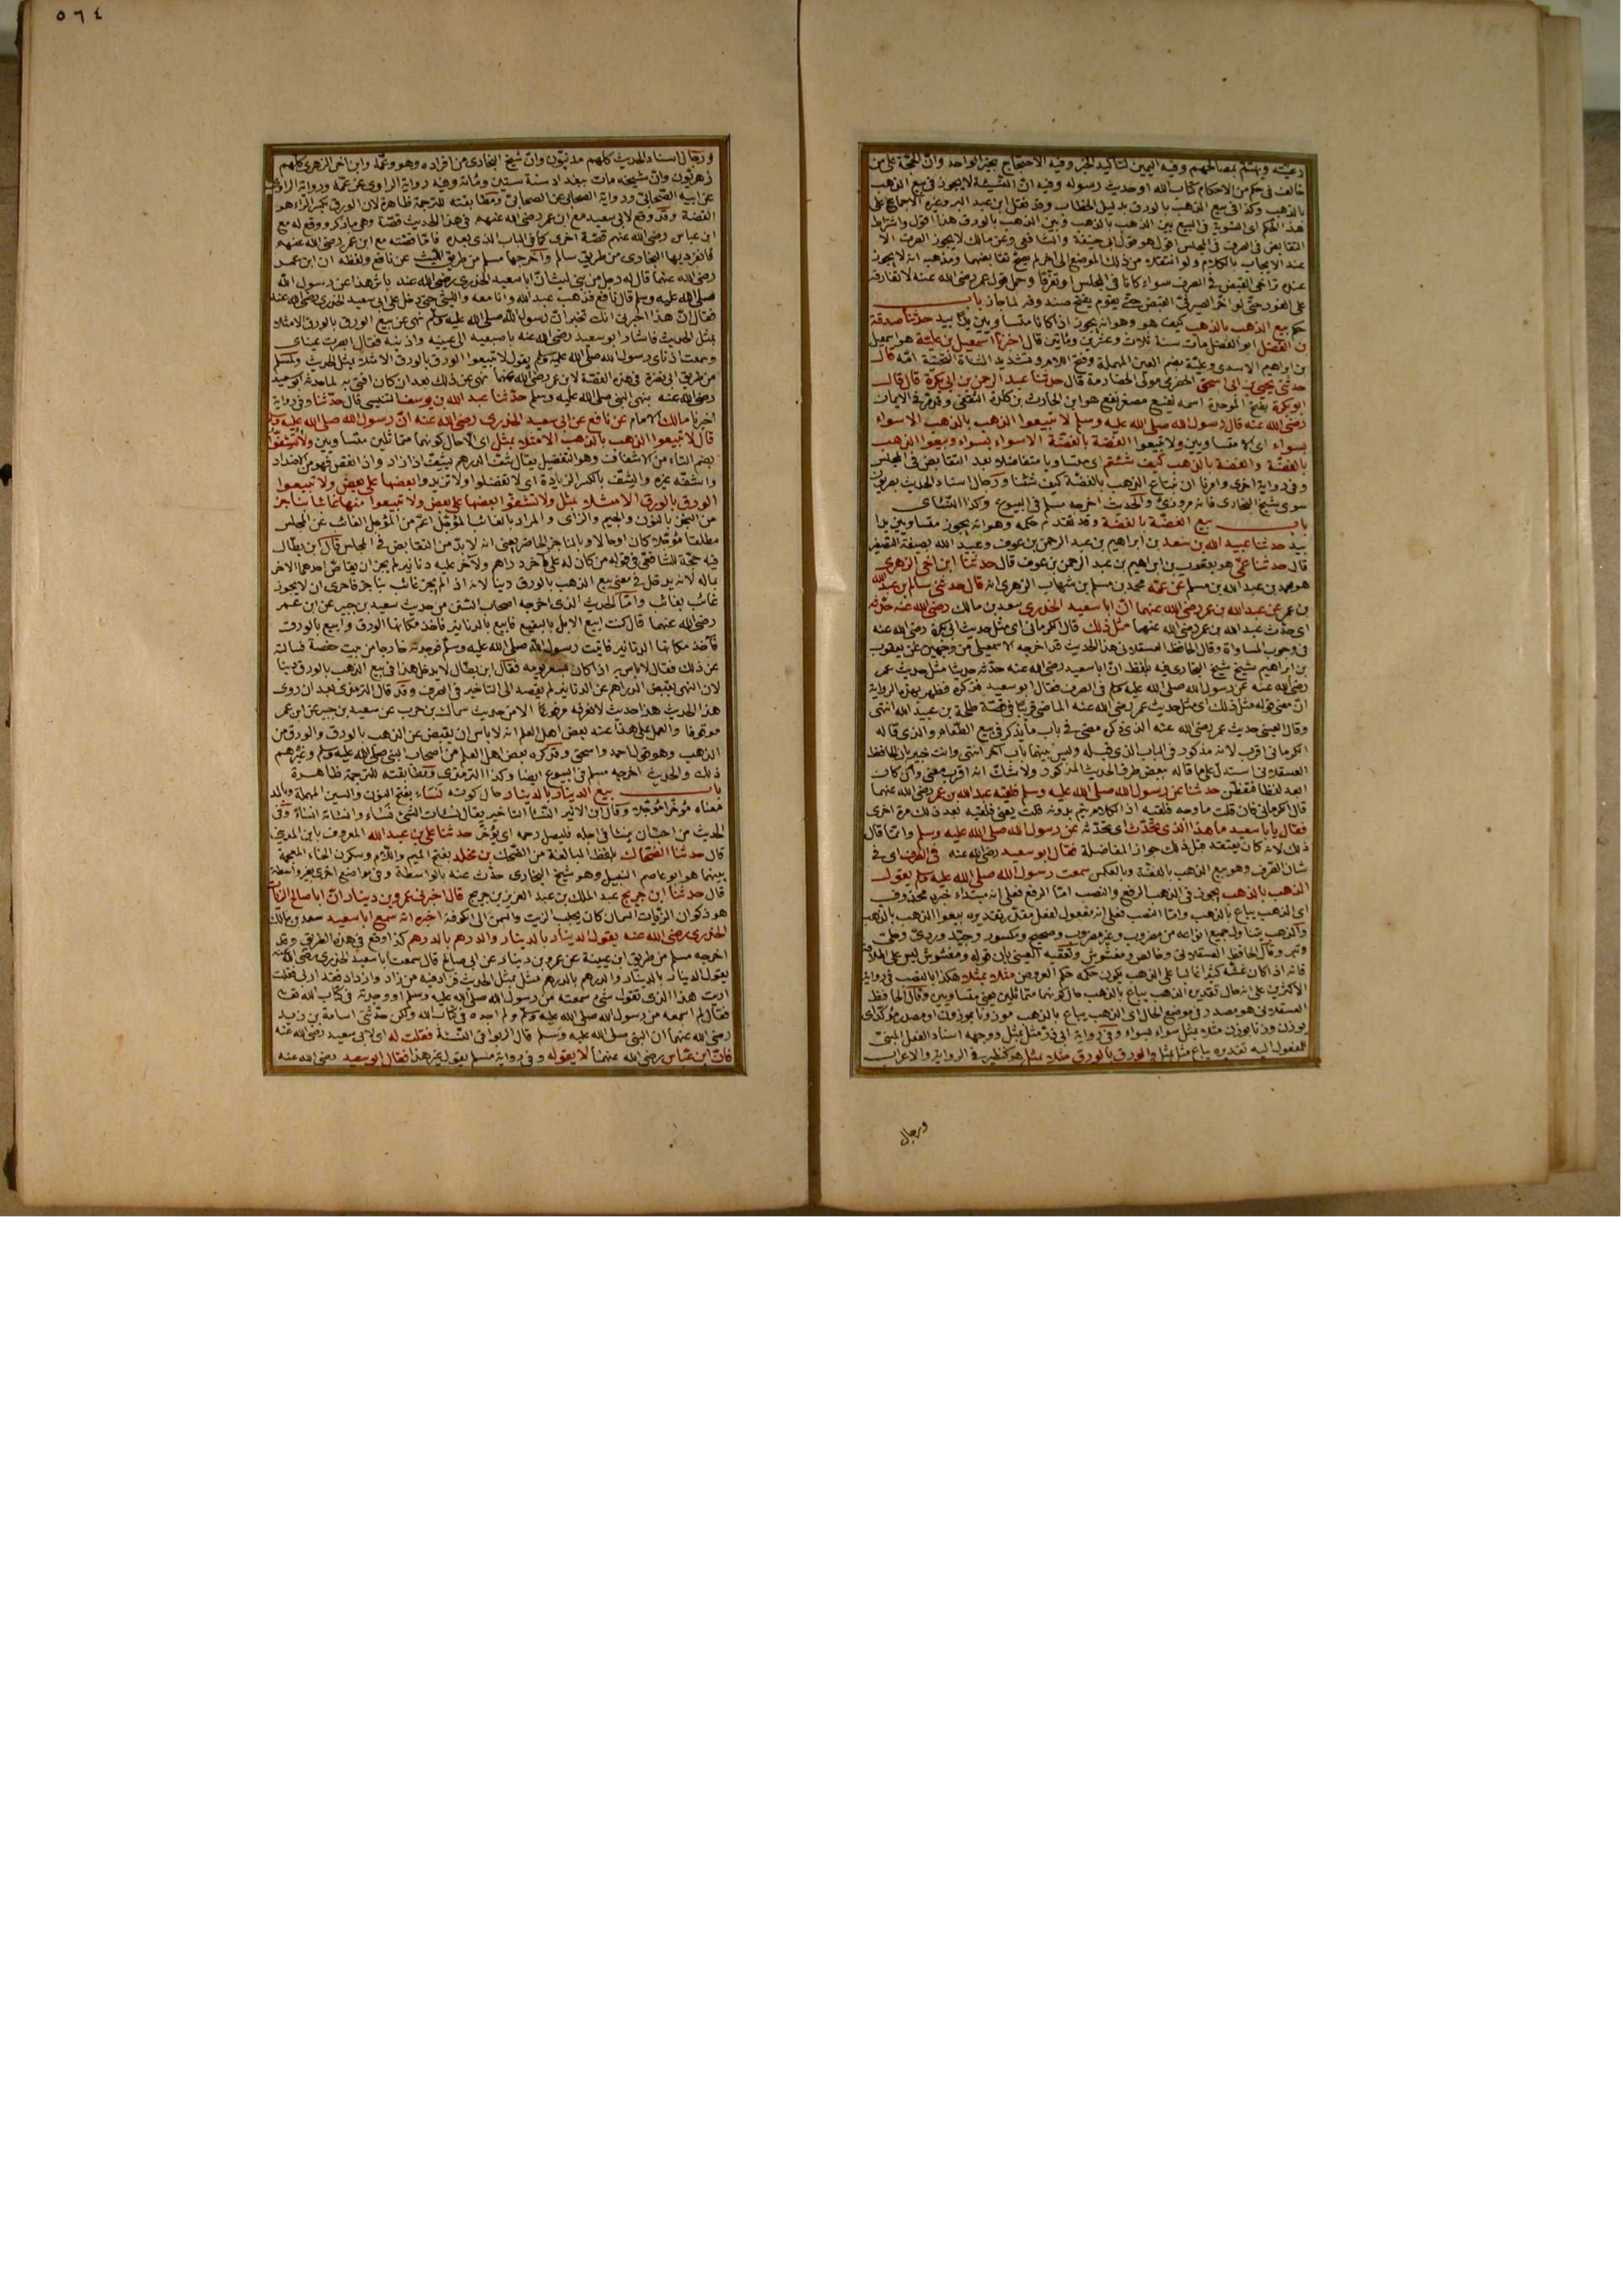 رعيته ويهتم بمصالحهم وفيه اليمين لتأكيد الخبر وفيه الاحتجاج بخبر الواحد وان الحجة على من
خالف في حكم من الاحكام كتاب الله او حديث رسوله وفيه ان النسيئة لا يجوز في بيع الذهب
بالذهب وكذا في بيع الذهب بالورق بدليل الخطاب وقد نقل ابن عبد البر وغيره الاجماع على
هذا الحكم اي التسوية في البيع بين الذهب بالذهب وبين الذهب بالورق هذا اقول واشتراط
التقابض في الصرف في المجلس هو قول ابي حنيفة والشافعي وعن مالك لا يجوز الصرف الا
عند الايجاب بالكلام ولو انتقلا من ذلك الموضع الى اخر لم يصح تقابضهما ومذهبه انه لا يجوز
عنده تراخي القبض في الصرف سواء كانا في المجلس او تفرقا وحمل قول عمر رضي الله عنه لا تفارقه
على الفور حتى لو اخر الصيرفي القبض حتى يقوم يفتح صندوقه لما جاز باب
حكم بيع الذهب بالذهب كيف هو وهو انه يجوز اذا كانا متساويين يدا بيد حدثنا صدقة
بن الفضل ابو الفضل مات سنة ثلاث وعشرين ومائتين قال اخبرنا اسمعيل بن علية هو اسمعيل
بن ابراهيم الاسدي وعلية بضم العين المهملة وفتح اللام وتشديد المثناة التحتية امه قال
حدثني يحيى بن ابي اسحق الحضرمي مولى الحضارمة قال حدثنا عبد الرحمن بن ابي بكرة قال قال
ابو بكرة بفتح الموحدة اسمه نفيع مصغر نفع هو ابن الحارث بن كلدة الثقفي وقد مر في الايمان
رضي الله عنه قال رسول الله صلى الله عليه وسلم لا تبيعوا الذهب بالذهب الا سواء
بسواء اي الا متساويين ولا تبيعوا الفضة بالفضة الا سواء بسواء وبيعوا الذهب
بالفضة والفضة بالذهب كيف شئتم اي متساويا متفاضلا بعد التقابض في المجلس
وفي رواية اخرى وامرنا ان نبتاع الذهب بالفضة كيف شئنا ورجال اسناد الحديث بصريون
سوى شيخ البخاري فانه مروزي والحديث اخرجه مسلم في البيوع وكذا النسائي
باب بيع الفضة بالفضة وقد تقدم حكمه وهو انه يجوز متساويين يدا
بيد حدثنا عبيد الله بن سعد بن ابراهيم بن عبد الرحمن بن عوف وعبيد الله بصيغة التصغير
قال حدثنا عمي هو يعقوب بن ابراهيم بن عبد الرحمن بن عوف قال حدثنا ابن اخي الزهري
هو محمد بن عبد الله بن مسلم عن عمه محمد بن مسلم بن شهاب الزهري انه قال حدثني سالم بن عبد الله
بن عمر عن عبد الله بن عمر رضي الله عنهما ان ابا سعيد الخدري سعد بن مالك رضي الله عنه حدثه
اي حدث عبد الله بن عمر رضي الله عنهما مثل ذلك قال الكرماني اي مثل حديث ابي بكرة رضي الله عنه
في وجوب المساواة وقال الحافظ العسقلاني هذا الحديث قد اخرجه الاسمعيلي من وجهين عن يعقوب
بن ابراهيم شيخ شيخ البخاري فيه بلفظ ان ابا سعيد رضي الله عنه حدثه حديثا مثل حديث عمر
رضي الله عنه عن رسول الله صلى الله عليه وسلم في الصرف فقال ابو سعيد فذكره فظهر بهذه الرواية
ان معنى قوله مثل ذلك اي مثل حديث عمر رضي الله عنه الماضي قريبا في قصة طلحة بن عبيد الله انتهى
وقال العيني حديث عمر رضي الله عنه الذي ذكر مضى في باب ما يذكر في بيع الطعام والذي قاله
الكرماني اقرب لانه مذكور في الباب الذي قبله وليس بينهما باب اخر انتهى وانت خبير بان الحافظ
العسقلاني استدل على ما قاله ببعض طرق الحديث المذكور ولا شك انه اقرب معنى وان كان
ابعد لفظا فتفطن حدثنا عن رسول الله صلى الله عليه وسلم فلقيه عبد الله بن عمر رضي الله عنهما
قال الكرماني فان قلت ما وجه فلقيه اذ الكلام يتم بدونه قلت يعني فلقيه بعد ذلك مرة اخرى
فقال يا با سعيد ما هذا الذي تحدث اي تحدثه عن رسول الله صلى الله عليه وسلم وانما قال
ذلك لانه كان يعتقد قبل ذلك جواز المفاضلة فقال ابو سعيد رضي الله عنه في الصرف اي في
شان الصرف وهو بيع الذهب بالفضة وبالعكس سمعت رسول الله صلى الله عليه وسلم يقول
الذهب بالذهب يجوز في الذهب الرفع والنصب اما الرفع فعلى انه مبتداء خبره محذوف
اي الذهب يباع بالذهب واما النصب فعلى انه مفعول لفعل مقدر تقديره بيعوا الذهب بالذهب
والذهب يتناول جميع انواعه من مضروب وغير مضروب وصحيح ومكسور وجيد وردئ وحلي
وتبر وقال الحافظ العسقلاني وخالص ومغشوش وتعقبه العيني بان قوله ومغشوش ليس على اطلاقه
فانه اذا كان غشه كثيرا غالبا على الذهب يكون حكمه حكم العروض مثلا بمثل هكذا بالنصب في رواية
الاكثرين على انه حال تقديره الذهب يباع بالذهب حال كونهما متماثلين يعني متساويين وقال الحافظ
العسقلاني هو مصدر في موضع الحال اي الذهب يباع بالذهب موزونا بموزون او مصدر مؤكد اي
يوزن وزنا بوزن مثله بمثل سواء بسواء وفي رواية ابي ذر مثل بمثل ووجهه اسناد الفعل المبني
للمفعول اليه تقديره يباع مثل بمثل والورق بالورق مثلا بمثل هو كنظيره في الرواية والاعراب
ورجال
٥٦٤
ورجال اسناد الحديث كلهم مدنيون وان شيخ البخاري من افراده وهو وعمه وابن اخي الزهري كلهم
زهريون وان شيخه مات ببغداد سنة ستين ومائة وفيه رواية الراوي عن عمه ورواية الراوي
عن ابيه الصحابي ورواية الصحابي عن الصحابي ومطابقته للترجمة ظاهرة لان الورق بكسر الراء هو
الفضة وقد وقع لابي سعيد مع ابن عمر رضي الله عنهم في هذا الحديث قصة وهي ما ذكر ووقع له مع
ابن عباس رضي الله عنهم قصة اخرى كما في الباب الذي بعده فاما قصته مع ابن عمر رضي الله عنهم
فانفرد بها البخاري من طريق سالم واخرجها مسلم من طريق الليث عن نافع ولفظه ان ابن عمر
رضي الله عنهما قال له رجل من بني ليث ان ابا سعيد الخدري رضي الله عنه ياثر هذا عن رسول الله
صلى الله عليه وسلم قال نافع فذهب عبد الله وانا معه والليثي حتى دخل على ابي سعيد الخدري رضي الله عنه
فقال ان هذا اخبرني انك تخبر ان رسول الله صلى الله عليه وسلم نهى عن بيع الورق بالورق الا مثلا
بمثل الحديث فاشار ابو سعيد رضي الله عنه باصبعيه الى عينيه واذنيه فقال ابصرت عيناي
وسمعت اذناي رسول الله صلى الله عليه وسلم يقول لا تبيعوا الورق بالورق الا مثلا بمثل الحديث ولمسلم
من طريق ابي نضرة في هذه القصة لابن عمر رضي الله عنهما نهى عن ذلك بعد ان كان افتى به لما حدثه ابو سعيد
رضي الله عنه بنهي النبي صلى الله عليه وسلم حدثنا عبد الله بن يوسف التنيسي قال حدثنا وفي رواية
اخبرنا مالك الامام عن نافع عن ابي سعيد الخدري رضي الله عنه ان رسول الله صلى الله عليه وسلم
قال لا تبيعوا الذهب بالذهب الا مثلا بمثل اي الا حال كونهما متماثلين متساويين ولا تشفوا
بضم التاء من الاشفاف وهو التفضيل يقال شف الدرهم يشف اذا زاد واذا نقص فهو من الاضداد
واشفه غيره والشف بالكسر الزيادة اي لا تفضلوا ولا تزيدوا بعضها على بعض ولا تبيعوا
الورق بالورق الا مثلا بمثل ولا تشفوا بعضها على بعض ولا تبيعوا منها غائبا بناجز
من النجز بالنون والجيم والزاي والمراد بالغائب المؤجل اعم من المؤجل الغائب عن المجلس
مطلقا مؤجلا كان او حالا وبالناجز الحاضر يعني انه لا بد من التقابض في المجلس قال ابن بطال
فيه حجة للشافعي في قوله من كان له على اخر دراهم ولآخر عليه دنانير لم يجز ان يقاص احدهما الاخر
بماله لانه يدخل في معنى بيع الذهب بالورق دينا لانه اذا لم يجز غائب بناجز فاحرى ان لا يجوز
غائب بغائب واما الحديث الذي اخرجه اصحاب السنن من حديث سعيد بن جبير عن ابن عمر
رضي الله عنهما قال كنت ابيع الابل بالبقيع فابيع بالدنانير فآخذ مكانها الورق وابيع بالورق
فآخذ مكانها الدنانير فاتيت رسول الله صلى الله عليه وسلم فوجدته خارجا من بيت حفصة فسالته
عن ذلك فقال لا باس به اذا كان بسعر يومه فقال ابن بطال لا يدخل هذا في بيع الذهب بالورق دينا
لان النهي بقبض الدراهم عن الدنانير لم يقصد الى التاخير في الصرف وقد قال الترمذي بعد ان روى
هذا الحديث هذا حديث لا نعرفه مرفوعا الا من حديث سماك بن حرب عن سعيد بن جبير عن ابن عمر
موقوفا والعمل على هذا عند بعض اهل العلم انه لا باس ان يقبض عن الذهب بالورق والورق من
الذهب وهو قول احمد واسحق وقد كره بعض اهل العلم من اصحاب النبي صلى الله عليه وسلم وغيرهم
ذلك والحديث اخرجه مسلم في البيوع ايضا وكذا الترمذي ومطابقته للترجمة ظاهرة
باب بيع الدينار بالدينار حال كونه نساء بفتح النون والسين المهملة وبالمد
معناه مؤخرا مؤجلا وقال ابن الاثير النسأ التاخير يقال نسأت الشئ نساء وانسأته انساء وفي
الحديث من احب ان ينسأ في اجله فليصل رحمه اي يؤخر حدثنا علي بن عبد الله المعروف بابن المديني
قال حدثنا الضحاك بلفظ المبالغة من الضحك بن مخلد بفتح الميم واللام وسكون الخاء المعجمة
بينهما هو ابو عاصم النبيل وهو شيخ البخاري حدث عنه بالواسطة وفي مواضع اخرى بغير واسطة
قال حدثنا ابن جريج عبد الملك بن عبد العزيز بن جريج قال اخبرني عمرو بن دينار ان ابا صالح الزيات
هو ذكوان الزيات السمان كان يجلب الزيت والسمن الى الكوفة اخبره انه سمع ابا سعيد سعد بن مالك
الخدري رضي الله عنه يقول الدينار بالدينار والدرهم بالدرهم كذا وقع في هذه الطريق وقد
اخرجه مسلم من طريق ابن عيينة عن عمرو بن دينار عن ابي صالح قال سمعت ابا سعيد الخدري رضي الله عنه
يقول الدينار بالدينار والدرهم بالدرهم مثل بمثل الحديث فزاد فيه من زاد وازداد فقد اربى فقلت
ارايت هذا الذي تقول شئ سمعته من رسول الله صلى الله عليه وسلم او وجدته في كتاب الله تعالى
فقال لم اسمعه من رسول الله صلى الله عليه وسلم ولم اجده في كتاب الله ولكن حدثني اسامة بن زيد
رضي الله عنهما ان النبي صلى الله عليه وسلم قال الربوا في النسئة فقلت له اي لابي سعيد رضي الله عنه
فان ابن عباس رضي الله عنهما لا يقوله وفي رواية مسلم يقول غير هذا فقال ابو سعيد رضي الله عنه